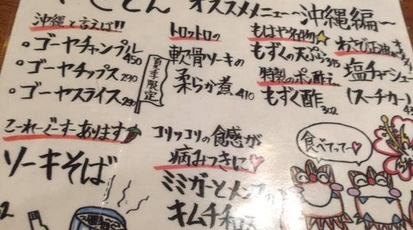 オススメメニュー～沖縄編～
沖縄と言えば!!
・ゴーヤチャンプル 450
・ゴーヤチップス 290
・ゴーヤスライス
夏季限定
こーれーぐーすあります
ソーキそば
トロットロの
軟骨ソーキの
柔らか煮 410
コリッコリの食感が
病みつきに♡
ミミガーと
キムチ和え
もはや名物☆
もずくの天ぷら
特製のポン酢で
もずく酢 302
塩チャーシュー
(スーチカー)
食べてってー♡